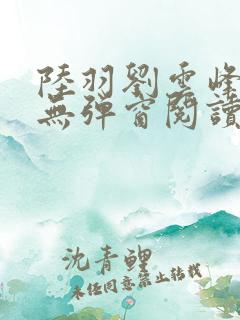 陸羽劉雲峰
無彈窗閱讀
沈青鯉
未任同意禁止轉載